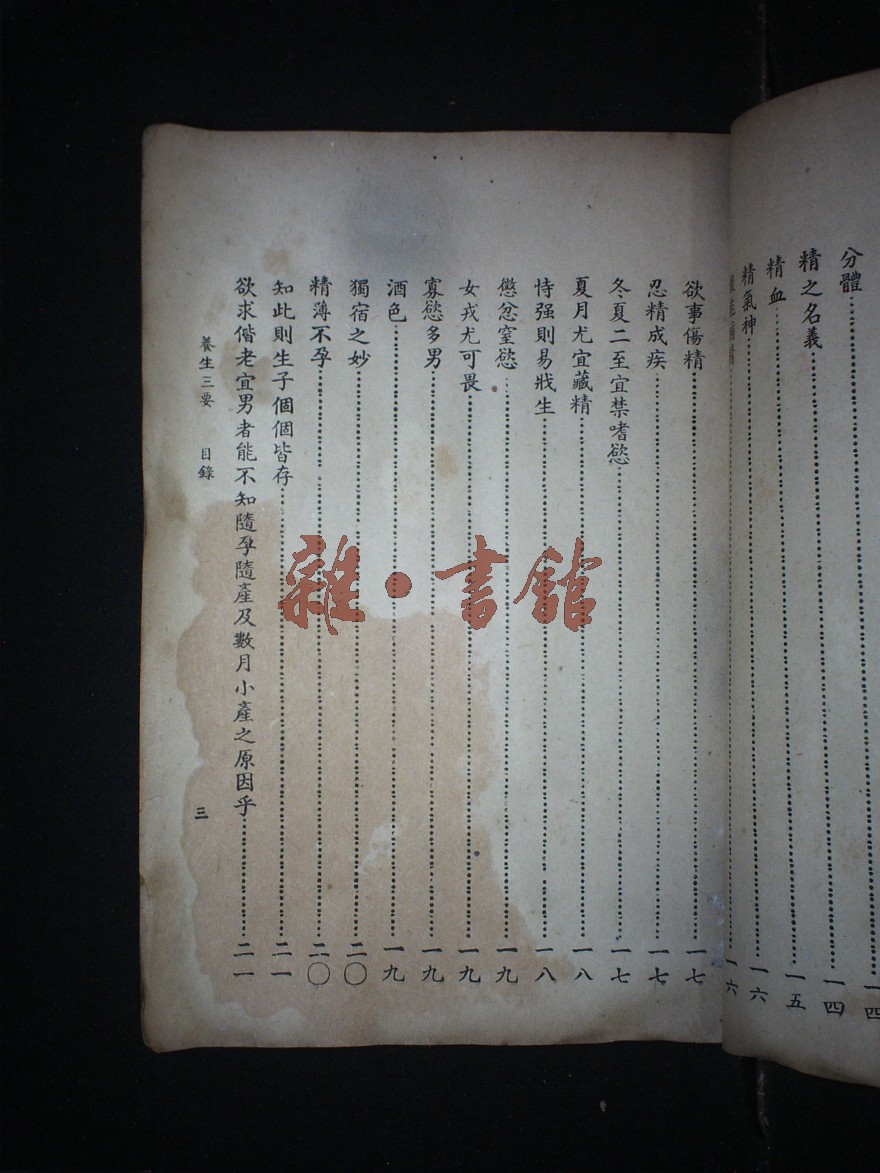 分體⋯⋯一四
精之名義⋯⋯一四
精血⋯⋯一五
精氣神⋯⋯一六
⋯⋯一六
欲事傷精⋯⋯一七
忍精成疾⋯⋯一七
冬夏二至宜禁嗜慾⋯⋯一七
夏月尤宜藏精⋯⋯一八
恃强則易戕生⋯⋯一八
懲忿窒慾⋯⋯一九
女戎尤可畏⋯⋯一九
寡慾多男⋯⋯一九
酒色⋯⋯一九
獨宿之妙⋯⋯二〇
精薄不孕⋯⋯二〇
知此則生子個個皆存⋯⋯二一
欲求偕老宜男者能不知隨孕隨產及數月小產之原因乎⋯⋯二一
養生三要 目錄 三
雜·書館